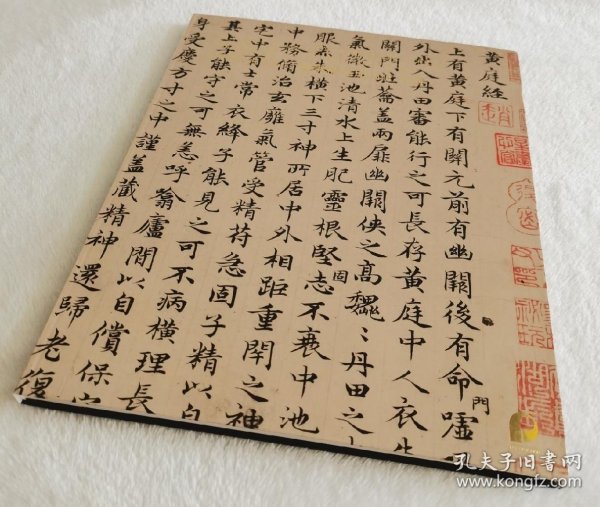 黃庭經
上有黃庭下有關元前有幽闕後有命門噓
外出入丹田審能行之可長存黃庭中人衣
關門壯蘥蓋兩扉幽闕俠之高巍﹦丹田之
氣微玉池清水上生肥靈根堅固志不衰中池
服赤朱橫下三寸神所居中外相距重閉之神
中務脩治玄廱氣管受精苻急固子精以自
宅中有士常衣絳子能見之可不病橫理長
其上子能守之可無恙呼翕廬間以自償保
身受慶方寸之中謹蓋藏精神還歸老復
孔夫子旧书网
www.kongfz.com